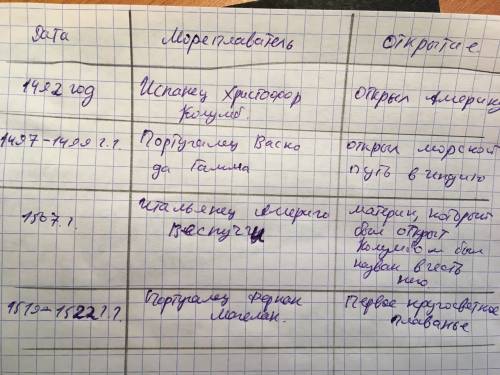 Дата
Мореплаватель
Открытие
1492 год
Испанец Христофор
Колумб.
Открыл Америку
1497-1499 г.г.
Португалец Васко
да Гамма
открыл морской
путь в Индию
1507 г.
Итальянец Америго
Веспуччи
материк, который
был открыт
Колумбом был
назван в честь
него
1519-1522 г.г.
Португалец Фернан
Магелан.
Первое кругосветное
плаванье